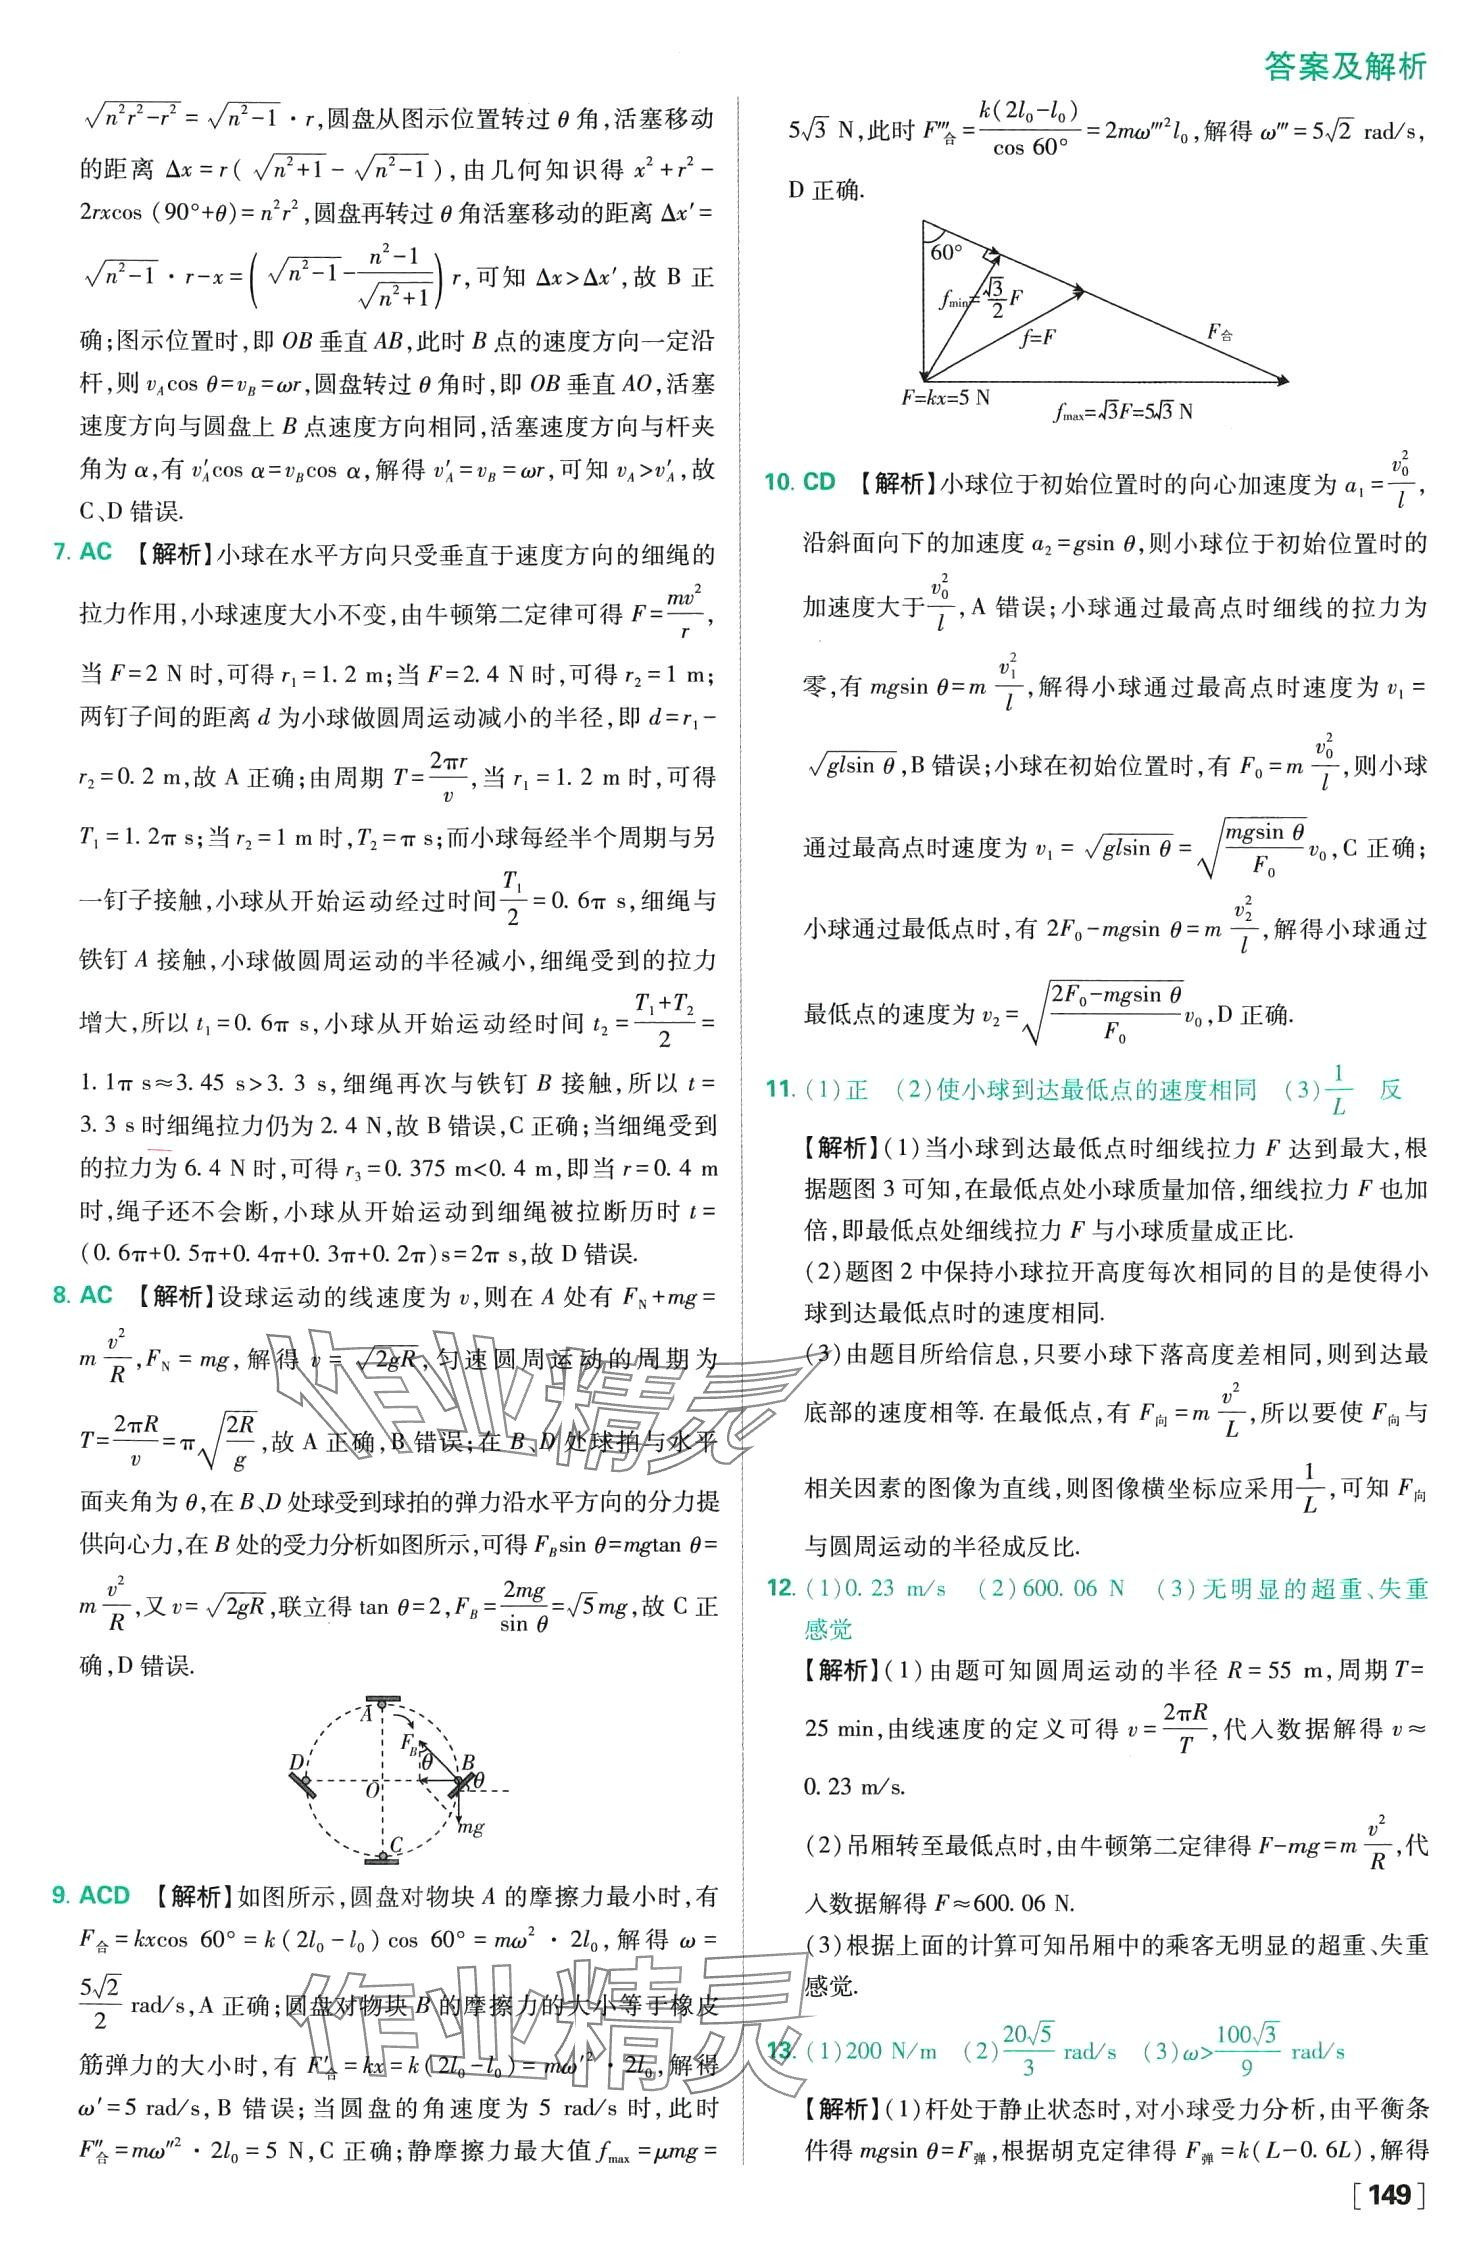 答案及解析
√(n²r²-r²) = √(n²-1)·r,圆盘从图示位置转过 θ 角,活塞移动
的距离 Δx=r(√(n²+1)-√(n²-1)),由几何知识得 x²+r²-
2rxcos (90°+θ)=n²r²,圆盘再转过 θ 角活塞移动的距离 Δx′=
√(n²-1)·r-x=(√(n²-1)-(n²-1)/√(n²+1))r,可知 Δx>Δx′,故 B 正
确;图示位置时,即 OB 垂直 AB,此时 B 点的速度方向一定沿
杆,则 v_A cos θ=v_B=ωr,圆盘转过 θ 角时,即 OB 垂直 AO,活塞
速度方向与圆盘上 B 点速度方向相同,活塞速度方向与杆夹
角为 α,有 v′_A cos α=v_B cos α,解得 v′_A=v_B=ωr,可知 v_A>v′_A,故
C、D 错误.
7. AC 【解析】小球在水平方向只受垂直于速度方向的细绳的
拉力作用,小球速度大小不变,由牛顿第二定律可得 F=mv²/r,
当 F=2 N 时,可得 r₁=1.2 m;当 F=2.4 N 时,可得 r₂=1 m;
两钉子间的距离 d 为小球做圆周运动减小的半径,即 d=r₁-
r₂=0.2 m,故 A 正确;由周期 T=2πr/v,当 r₁=1.2 m 时,可得
T₁=1.2π s;当 r₂=1 m 时,T₂=π s;而小球每经半个周期与另
一钉子接触,小球从开始运动经过时间 T₁/2=0.6π s,细绳与
铁钉 A 接触,小球做圆周运动的半径减小,细绳受到的拉力
增大,所以 t₁=0.6π s,小球从开始运动经时间 t₂=(T₁+T₂)/2=
1.1π s≈3.45 s>3.3 s,细绳再次与铁钉 B 接触,所以 t=
3.3 s时细绳拉力仍为 2.4 N,故 B 错误,C 正确;当细绳受到
的拉力为 6.4 N 时,可得 r₃=0.375 m<0.4 m,即当 r=0.4 m
时,绳子还不会断,小球从开始运动到细绳被拉断历时 t=
(0.6π+0.5π+0.4π+0.3π+0.2π)s=2π s,故 D 错误.
8. AC 【解析】设球运动的线速度为 v,则在 A 处有 F_N+mg=
m v²/R,F_N=mg,解得 v=√(2gR),匀速圆周运动的周期为
T=2πR/v=π√(2R/g),故 A 正确,B 错误;在 B、D 处球拍与水平
面夹角为 θ,在 B、D 处球受到球拍的弹力沿水平方向的分力提
供向心力,在 B 处的受力分析如图所示,可得 F_B sin θ=mgtan θ=
m v²/R,又 v=√(2gR),联立得 tan θ=2,F_B=2mg/sin θ=√5mg,故 C 正
确,D 错误.
A
F_B
D
θ
B
θ
O
mg
C
9. ACD 【解析】如图所示,圆盘对物块 A 的摩擦力最小时,有
F合=kxcos 60°=k(2l₀-l₀)cos 60°=mω²·2l₀,解得 ω=
5√2/2 rad/s,A 正确;圆盘对物块 B 的摩擦力的大小等于橡皮
筋弹力的大小时,有 F′合=kx=k(2l₀-l₀)=mω′²·2l₀,解得
ω′=5 rad/s,B 错误;当圆盘的角速度为 5 rad/s 时,此时
F″合=mω″²·2l₀=5 N,C 正确;静摩擦力最大值 f_max=μmg=
5√3 N,此时 F‴合=k(2l₀-l₀)/cos 60°=2mω‴²l₀,解得 ω‴=5√2 rad/s,
D 正确.
60°
f_min=√3/2 F
f=F
F合
F=kx=5 N
f_max=√3F=5√3 N
10. CD 【解析】小球位于初始位置时的向心加速度为 a₁=v₀²/l,
沿斜面向下的加速度 a₂=gsin θ,则小球位于初始位置时的
加速度大于 v₀²/l,A 错误;小球通过最高点时细线的拉力为
零,有 mgsin θ=m v₁²/l,解得小球通过最高点时速度为 v₁=
√(glsin θ),B 错误;小球在初始位置时,有 F₀=m v₀²/l,则小球
通过最高点时速度为 v₁=√(glsin θ)=√(mgsin θ/F₀) v₀,C 正确;
小球通过最低点时,有 2F₀-mgsin θ=m v₂²/l,解得小球通过
最低点的速度为 v₂=√((2F₀-mgsin θ)/F₀) v₀,D 正确.
11. (1)正 (2)使小球到达最低点的速度相同 (3)1/L 反
【解析】(1)当小球到达最低点时细线拉力 F 达到最大,根
据题图 3 可知,在最低点处小球质量加倍,细线拉力 F 也加
倍,即最低点处细线拉力 F 与小球质量成正比.
(2)题图 2 中保持小球拉开高度每次相同的目的是使得小
球到达最低点时的速度相同.
(3)由题目所给信息,只要小球下落高度差相同,则到达最
底部的速度相等. 在最低点,有 F向=m v²/L,所以要使 F向与
相关因素的图像为直线,则图像横坐标应采用 1/L,可知 F向
与圆周运动的半径成反比.
12. (1)0.23 m/s (2)600.06 N (3)无明显的超重、失重
感觉
【解析】(1)由题可知圆周运动的半径 R=55 m,周期 T=
25 min,由线速度的定义可得 v=2πR/T,代入数据解得 v≈
0.23 m/s.
(2)吊厢转至最低点时,由牛顿第二定律得 F-mg=m v²/R,代
入数据解得 F≈600.06 N.
(3)根据上面的计算可知吊厢中的乘客无明显的超重、失重
感觉.
13. (1)200 N/m (2)20√5/3 rad/s (3)ω>100√3/9 rad/s
【解析】(1)杆处于静止状态时,对小球受力分析,由平衡条
件得 mgsin θ=F弹,根据胡克定律得 F弹=k(L-0.6L),解得
[149]
作业精灵
作业精灵